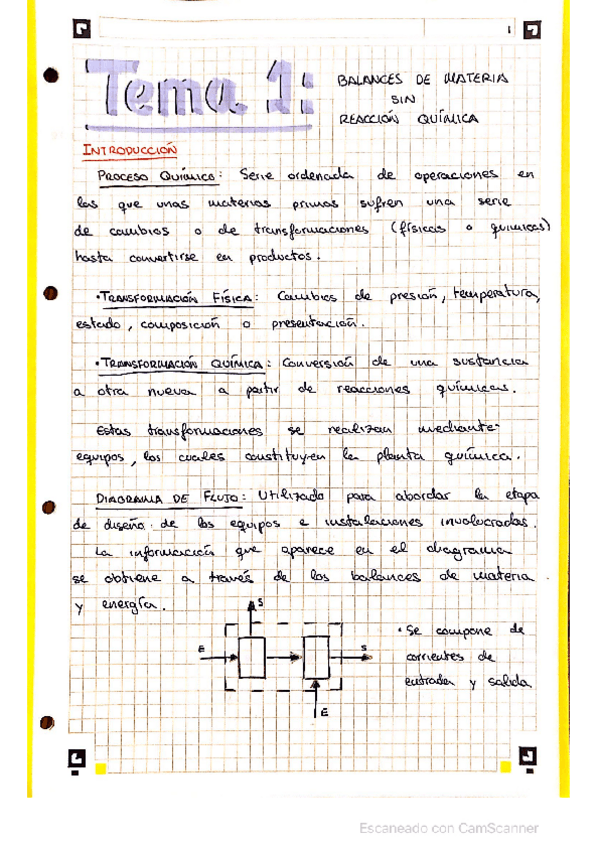 1
Tema 1:
BALANCES DE MATERIA
SIN
REACCIÓN QUÍMICA
INTRODUCCIÓN
PROCESO QUÍMICO: Serie ordenada de operaciones en
las que unas materias primas sufren una serie
de cambios o de transformaciones (físicas o químicas)
hasta convertirse en productos.
•TRANSFORMACIÓN FÍSICA: Cambios de presión, temperatura,
estado, composición o presentación.
•TRANSFORMACIÓN QUÍMICA: Conversión de una sustancia
a otra nueva a partir de reacciones químicas.
Estas transformaciones se realizan mediante
equipos, los cuales constituyen la planta química.
DIAGRAMA DE FLUJO: Utilizado para abordar la etapa
de diseño de los equipos e instalaciones involucradas.
La información que aparece en el diagrama
se obtiene a través de los balances de materia
y energía.
S
E
S
E
• Se compone de
corrientes de
entrada y salida
Escaneado con CamScanner